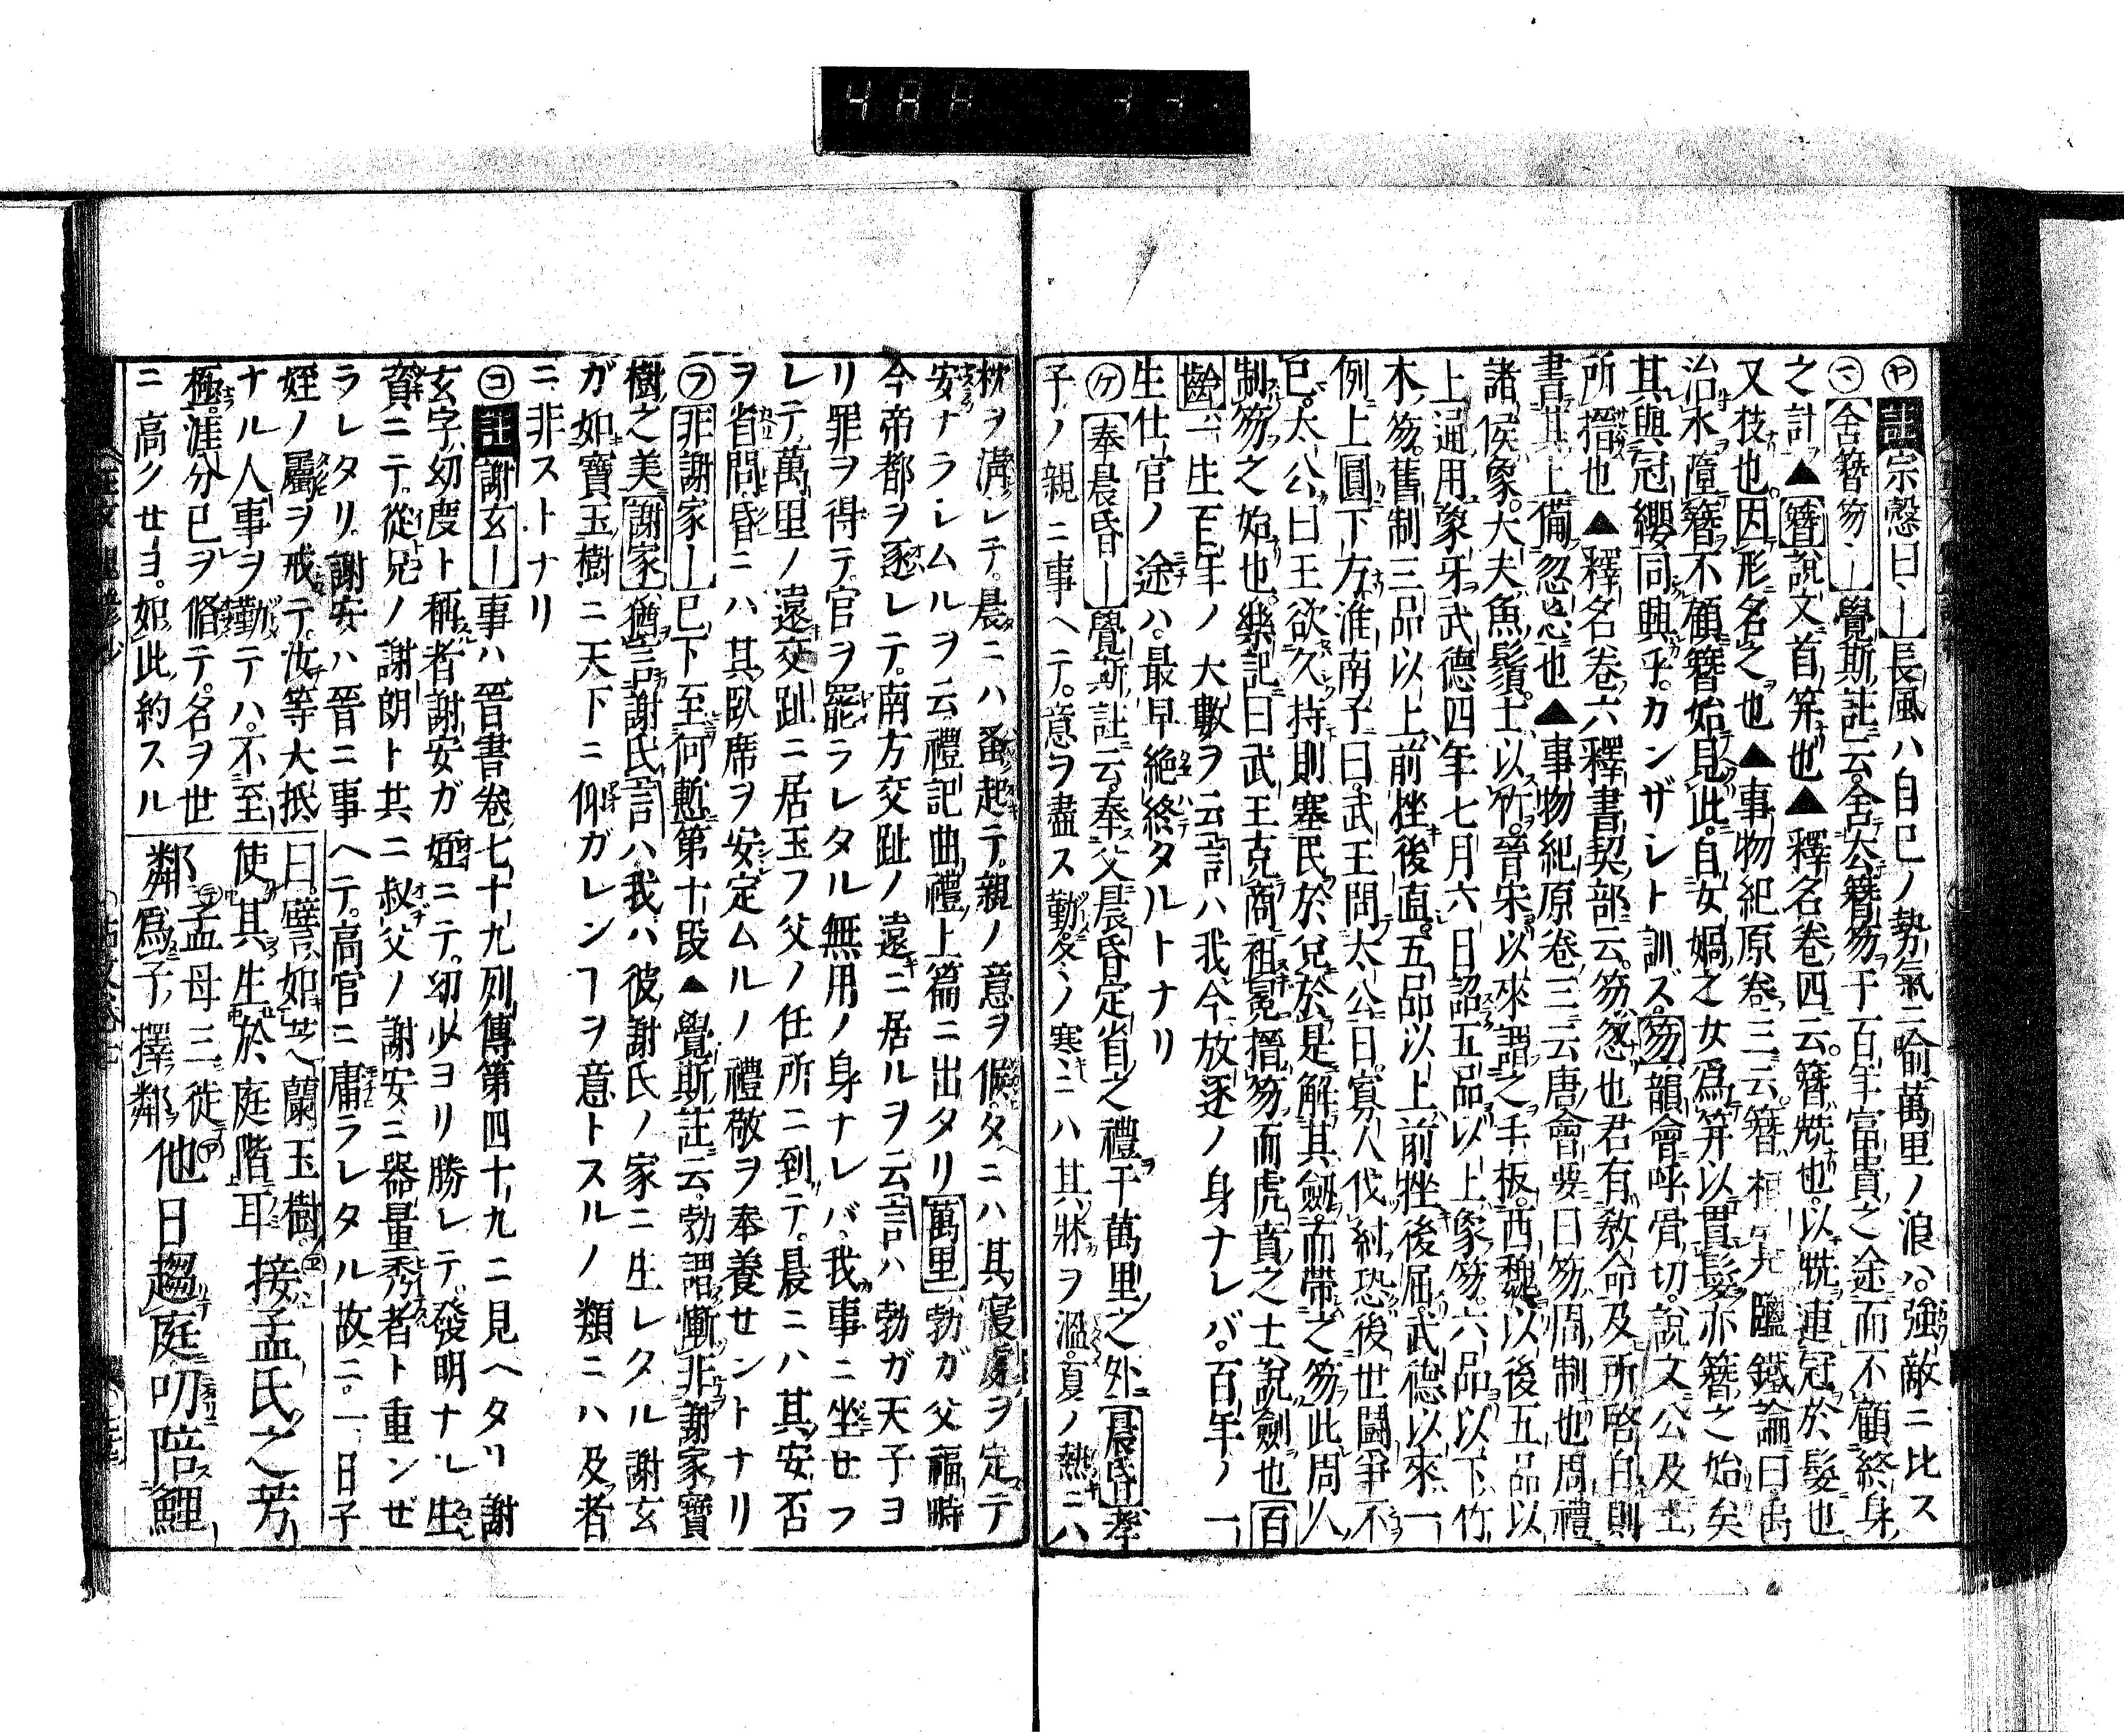 ㋳註宗慤曰、―長風ハ自已ノ勢氣ニ喻萬里ノ浪ハ。強敵ニ比ス
㋮舍簪笏、―覺斯註云。舍去簪笏于百年富貴之途而不顧終身
之計▲簪說文首笄也▲釋名卷四云。簪兓也。以兓連冠於髮也
又枝也。因形名之也▲事物紀原卷三云。簪桓寬鹽鐵論曰禹
治水隨簪不顧簪始見此。自女媧之女爲笄以貫髮亦簪之始矣
其與冠纓同興乎。カンザシト訓ズ。笏韻會呼骨切。說文公及士
所搢也▲釋名卷六釋書契部云。笏忽也君有敎命及所啓白則
書其上備忽忘也▲事物紀原卷三云唐會要曰笏周制也周禮
諸侯象。大夫魚鬚。士以竹。晉宋以來謂之手板。西魏以後五品以
上通用象牙武德四年七月六日詔五品以上象笏。六品以下竹
木笏。舊制三品以上前挫後直。五品以上前挫後屈。武德以來一
例上圓下方。淮南子曰。武王問太公曰。寡人伐紂恐後世鬪爭不
已。太公曰王欲久持則塞民於兌於是解其劔而帶之笏此周人
制笏之始也。樂記曰武王克商裨冕搢笏而虎賁之士說劍也百
齡一生百年ノ大數ヲ云言ハ我今放逐ノ身ナレバ。百年ノ一
生仕官ノ途ハ。最早絕終タルトナリ
㋘奉晨昏―覺斯註云。奉父晨昏定省之禮于萬里之外晨昏孝
子ノ親ニ事ヘテ。意ヲ盡ス勤。冬ノ寒ニハ其牀ヲ溫。夏ノ熱ニハ
枕ヲ溝シテ。晨ニハ蚤起テ。親ノ意ヲ候。夕ニハ其寢處ヲ定テ
安ナラシムルヲ云禮記曲禮上篇ニ出タリ萬里勃ガ父福時
今帝都ヲ逐レテ。南方交趾ノ遠ニ居ルヲ云言ハ勃ガ天子ヨ
リ罪ヲ得テ。官ヲ罷ラレタル無用ノ身ナレバ、我事ニ坐せラ
レテ。萬里ノ遠交趾ニ居玉フ父ノ任所ニ到テ。晨ニハ其安否
ヲ省問。昏ニハ其臥席ヲ安定ムルノ禮敬ヲ奉養セントナリ
㋫非謝家―已下至何慙第十段▲覺斯註云。勃謂慚非謝家寶
樹之美謝家猶言謝氏言ハ我ハ彼謝氏ノ家ニ生レタル謝玄
ガ如寶玉樹ニ天下ニ仰ガレンヿヲ意トスルノ類ニハ及者
ニ非ストナリ
㋙註謝玄―事ハ晉書卷七十九列傳第四十九ニ見ヘタリ謝
玄字幼度ト稱者謝安ガ姪ニテ。幼少ヨリ勝レテ。發明ナル生
資ニテ。從兄ノ謝朗ト共ニ叔父ノ謝安ニ器量秀者ト重ンぜ
ラレタリ謝安ハ晉ニ事ヘテ。高官ニ庸ラレタル故ニ。一日子
姪ノ屬ヲ戒テ。汝等大抵
ナル人事ヲ勤テハ。不至
極。涯分已ヲ脩テ。名ヲ世
ニ高クせヨ。如此約スル
曰。譬如芝蘭玉樹㋓
使其生於庭階耳 接孟氏之芳
鄰、㋢孟母三徙㋐
鄰爲子擇鄰 他日趨庭叨陪鯉